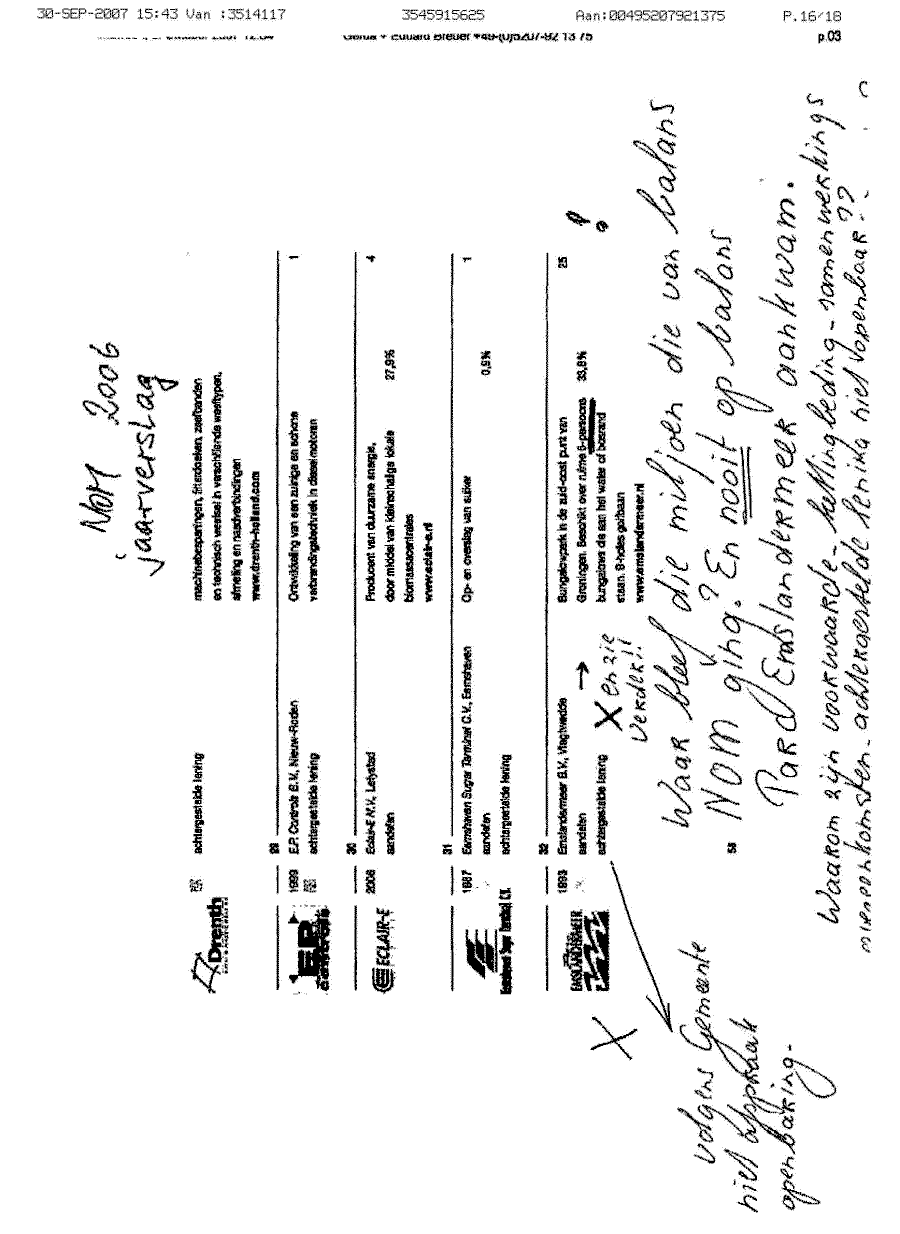 30-SEP-2007 15:43 Van :3514117 3545915625 Aan:00495207921375 P.16/18
Gerda + Eduard Breuer +49-(0)5207-92 13 75 p.03
NOM 2006
jaarverslag
Drenth
achtergestelde lening
machinebespanningen, filterdoeken, zeefbanden
en technisch weefsel in verschillende weeftypen,
afmeting en naadverbindingen
www.drenth-holland.com
29
EP
Controls
1999
E.P. Controls B.V., Nieuw-Roden
achtergestelde lening
Ontwikkeling van een zuinige en schone
verbrandingstechniek in dieselmotoren
1
30
ECLAIR-E
2006
Eclair-E N.V., Lelystad
aandelen
Producent van duurzame energie,
door middel van kleinschalige lokale
biomassacentrales
www.eclair-e.nl
27,9%
4
31
Eemshaven Sugar Terminal C.V.
1987
Eemshaven Sugar Terminal C.V., Eemshaven
aandelen
achtergestelde lening
Op- en overslag van suiker
0,9%
1
32
EMSLANDERMEER
1993
Emslandermeer B.V., Vlagtwedde
aandelen
achtergestelde lening
Bungalowpark in de zuid-oost punt van
Groningen. Beschikt over ruime 6-persoons
bungalows die aan het water of bosrand
staan. 9-holes golfbaan
www.emslandermeer.nl
33,8%
25
!
→
X en zie
verder!!
58
Waar bleef die miljoen die van balans
NOM ging? En nooit op balans
Parc Emslandermeer aankwam.
Waarom zijn voorwaarde - hellingbeding - samenwerkings
overeenkomsten - achtergestelde lening niet openbaar??
X
volgens Gemeente
niet afspraak
openbaring -